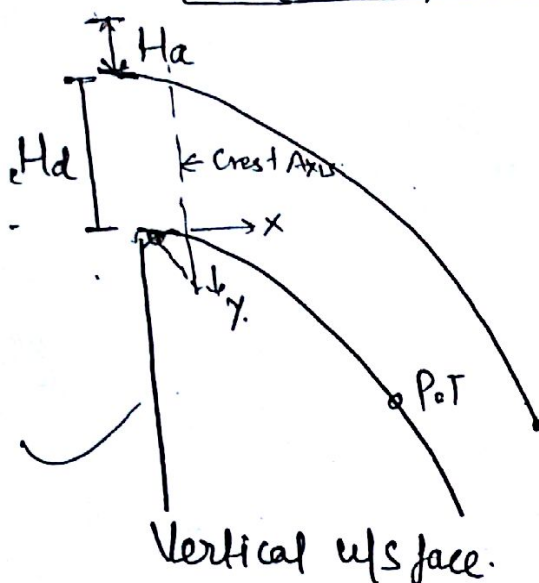 Ha
Hd
← Crest Axis
x
y.
P.T
Vertical u/s face.